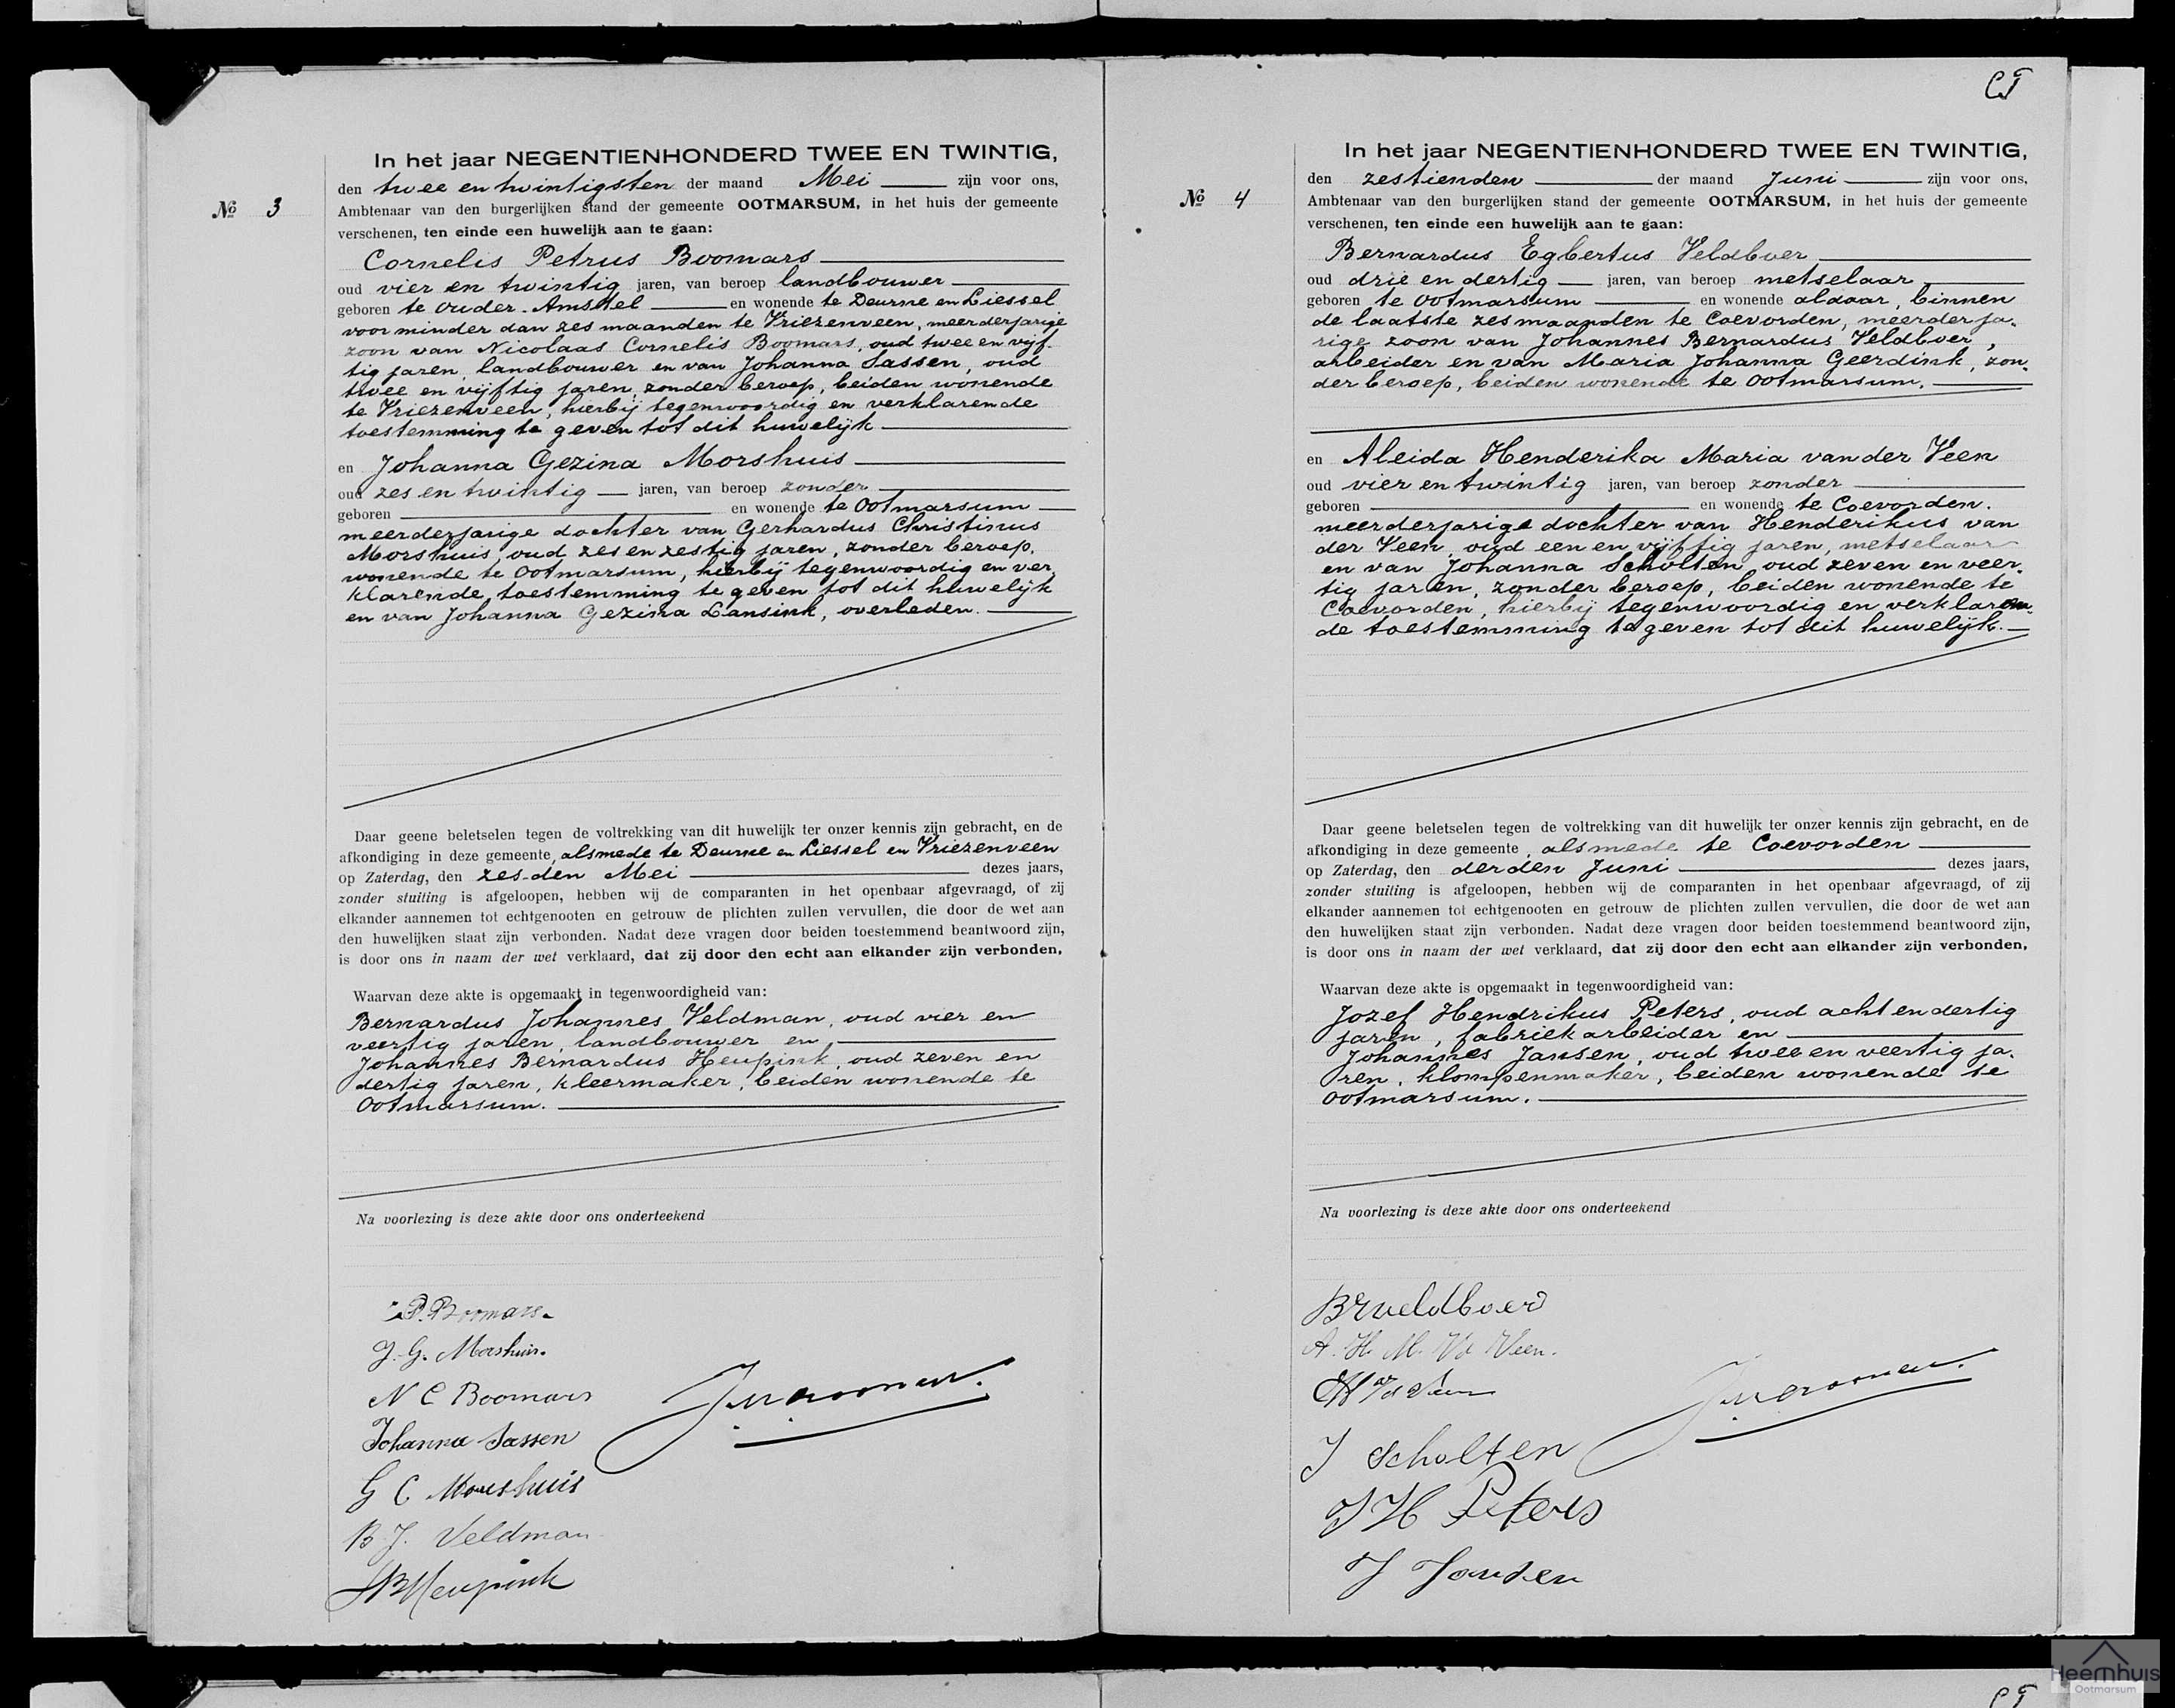 In het jaar NEGENTIENHONDERD TWEE EN TWINTIG,
den twee en twintigsten der maand Mei zijn voor ons,
No 3
Ambtenaar van den burgerlijken stand der gemeente OOTMARSUM, in het huis der gemeente
verschenen, ten einde een huwelijk aan te gaan:
Cornelis Petrus Boomars
oud vier en twintig jaren, van beroep landbouwer
geboren te Ouder-Amstel en wonende te Deurne en Liessel
voor minder dan zes maanden te Vriezenveen, meerderjarige
zoon van Nicolaas Cornelis Boomars, oud twee en vijf-
tig jaren, landbouwer en van Johanna Sassen, oud
twee en vijftig jaren, zonder beroep, beiden wonende
te Vriezenveen, hierbij tegenwoordig en verklarende
toestemming te geven tot dit huwelijk
en Johanna Gezina Morshuis
oud zes en twintig jaren, van beroep zonder
geboren en wonende te Ootmarsum
meerderjarige dochter van Gerhardus Christinus
Morshuis, oud zes en zestig jaren, zonder beroep,
wonende te Ootmarsum, hierbij tegenwoordig en ver
klarende, toestemming te geven tot dit huwelijk
en van Johanna Gezina Lansink, overleden.
Daar geene beletselen tegen de voltrekking van dit huwelijk ter onzer kennis zijn gebracht, en de
afkondiging in deze gemeente, alsmede te Deurne en Liessel en Vriezenveen
op Zaterdag, den zesden Mei dezes jaars,
zonder stuiting is afgeloopen, hebben wij de comparanten in het openbaar afgevraagd, of zij
elkander aannemen tot echtgenooten en getrouw de plichten zullen vervullen, die door de wet aan
den huwelijken staat zijn verbonden. Nadat deze vragen door beiden toestemmend beantwoord zijn,
is door ons in naam der wet verklaard, dat zij door den echt aan elkander zijn verbonden,
Waarvan deze akte is opgemaakt in tegenwoordigheid van:
Bernardus Johannes Veldman, oud vier en
veertig jaren, landbouwer en
Johannes Bernardus Heupink, oud zeven en
dertig jaren, kleermaker, beiden wonende te
Ootmarsum.
Na voorlezing is deze akte door ons onderteekend
P. Boomars.
J. G. Morshuis.
N C Boomars
Johanna Sassen
G C Morshuis
B. J. Veldman
JB Heupink
CT
In het jaar NEGENTIENHONDERD TWEE EN TWINTIG,
den zestienden der maand Juni zijn voor ons,
No 4
Ambtenaar van den burgerlijken stand der gemeente OOTMARSUM, in het huis der gemeente
verschenen, ten einde een huwelijk aan te gaan:
Bernardus Egbertus Veldboer
oud drie en dertig jaren, van beroep metselaar
geboren te Ootmarsum en wonende aldaar, binnen
de laatste zes maanden te Coevorden, meerderja-
rige zoon van Johannes Bernardus Veldboer,
arbeider en van Maria Johanna Geerdink, zon-
der beroep, beiden wonende te Ootmarsum.
en Aleida Henderika Maria van der Veen
oud vier en twintig jaren, van beroep zonder
geboren en wonende te Coevorden.
meerderjarige dochter van Henderikus van
der Veen, oud een en vijftig jaren, metselaar
en van Johanna Scholten oud zeven en veer-
tig jaren, zonder beroep, beiden wonende te
Coevorden, hierbij tegenwoordig en verklaren-
de toestemming te geven tot dit huwelijk.
Daar geene beletselen tegen de voltrekking van dit huwelijk ter onzer kennis zijn gebracht, en de
afkondiging in deze gemeente, alsmede te Coevorden
op Zaterdag, den derden Juni dezes jaars,
zonder stuiting is afgeloopen, hebben wij de comparanten in het openbaar afgevraagd, of zij
elkander aannemen tot echtgenooten en getrouw de plichten zullen vervullen, die door de wet aan
den huwelijken staat zijn verbonden. Nadat deze vragen door beiden toestemmend beantwoord zijn,
is door ons in naam der wet verklaard, dat zij door den echt aan elkander zijn verbonden,
Waarvan deze akte is opgemaakt in tegenwoordigheid van:
Jozef Hendrikus Peters, oud acht en dertig
jaren, fabriekarbeider en
Johannes Jansen, oud twee en veertig ja-
ren, klompenmaker, beiden wonende te
Ootmarsum.
Na voorlezing is deze akte door ons onderteekend
BEveldboer
A. H. M. Vd Veen.
J Scholten
J H Peters
J Jansen
Heemhuis
Ootmarsum
CT